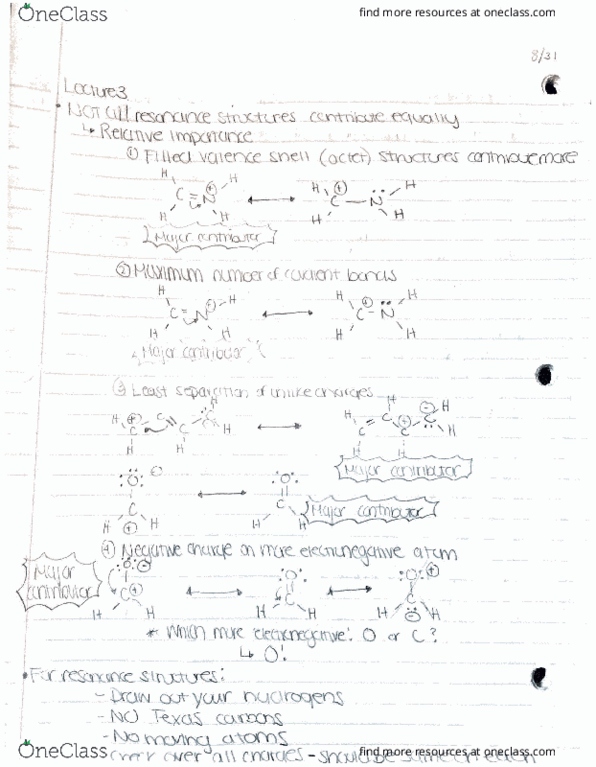 OneClass
find more resources at oneclass.com
8/31
Lecture 3
• NOT all resonance structures contribute equally
↳ Relative importance
① Filled valence shell (octet) structures contribute more
H H H H
C = N ⊕ ⟷ ⊕ C — N
H H H H
Major contributor
② Maximum number of covalent bonds
H H H H
C = N ⊕ ⟷ ⊕ C - N
H H H H
Major contributor
③ Least separation of unlike charges
Major contributor
:Ö: ⊖ ⟷ :O:
C C
H ⊕ H H H
Major contributor
④ Negative charge on more electronegative atom
Major contributor
:O: ⊖ ⟷ :O: ⟷ :O: ⊕
C ⊕ C C ⊖
H H H H H H
* Which more electronegative: O or C?
↳ O!
• For resonance structures:
- Draw out your hydrogens
- NO Texas carbons
- No moving atoms
over all charges - should be
OneClass
find more resources at oneclass.com